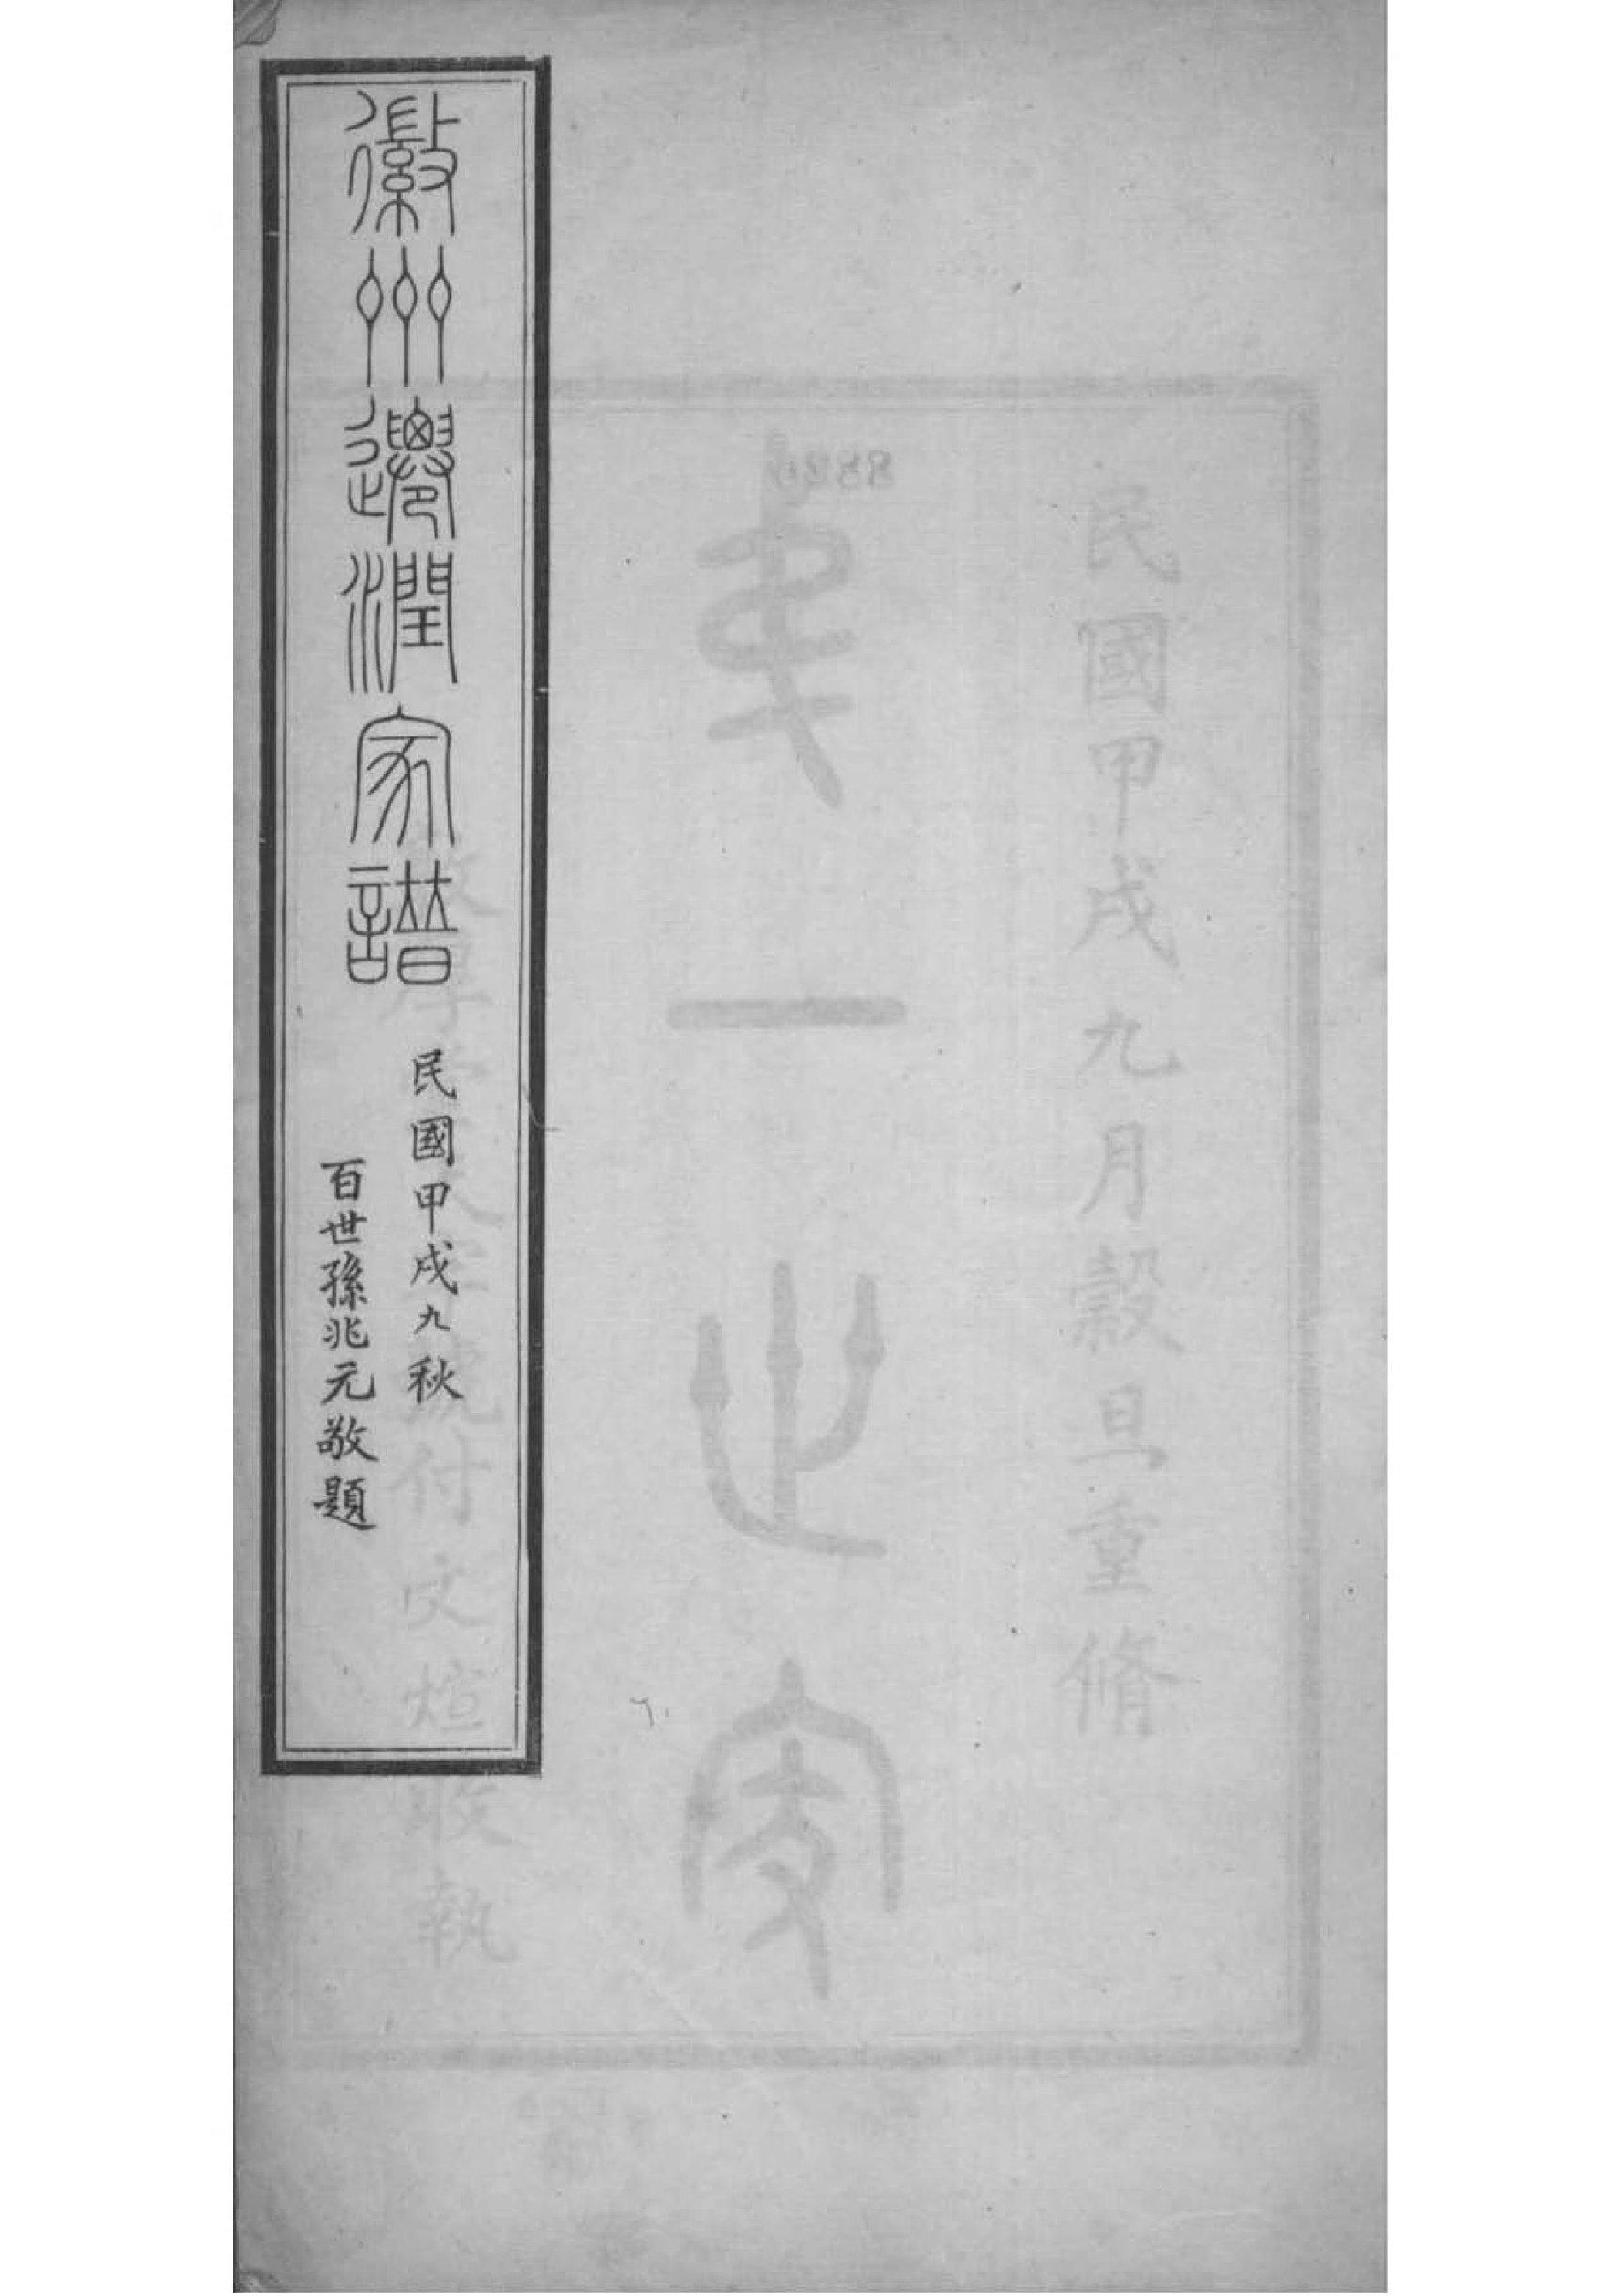 民國甲戌九月穀旦重脩
徽州遷潤家譜
民國甲戌九秋
百世孫兆元敬題
號付文煊收執